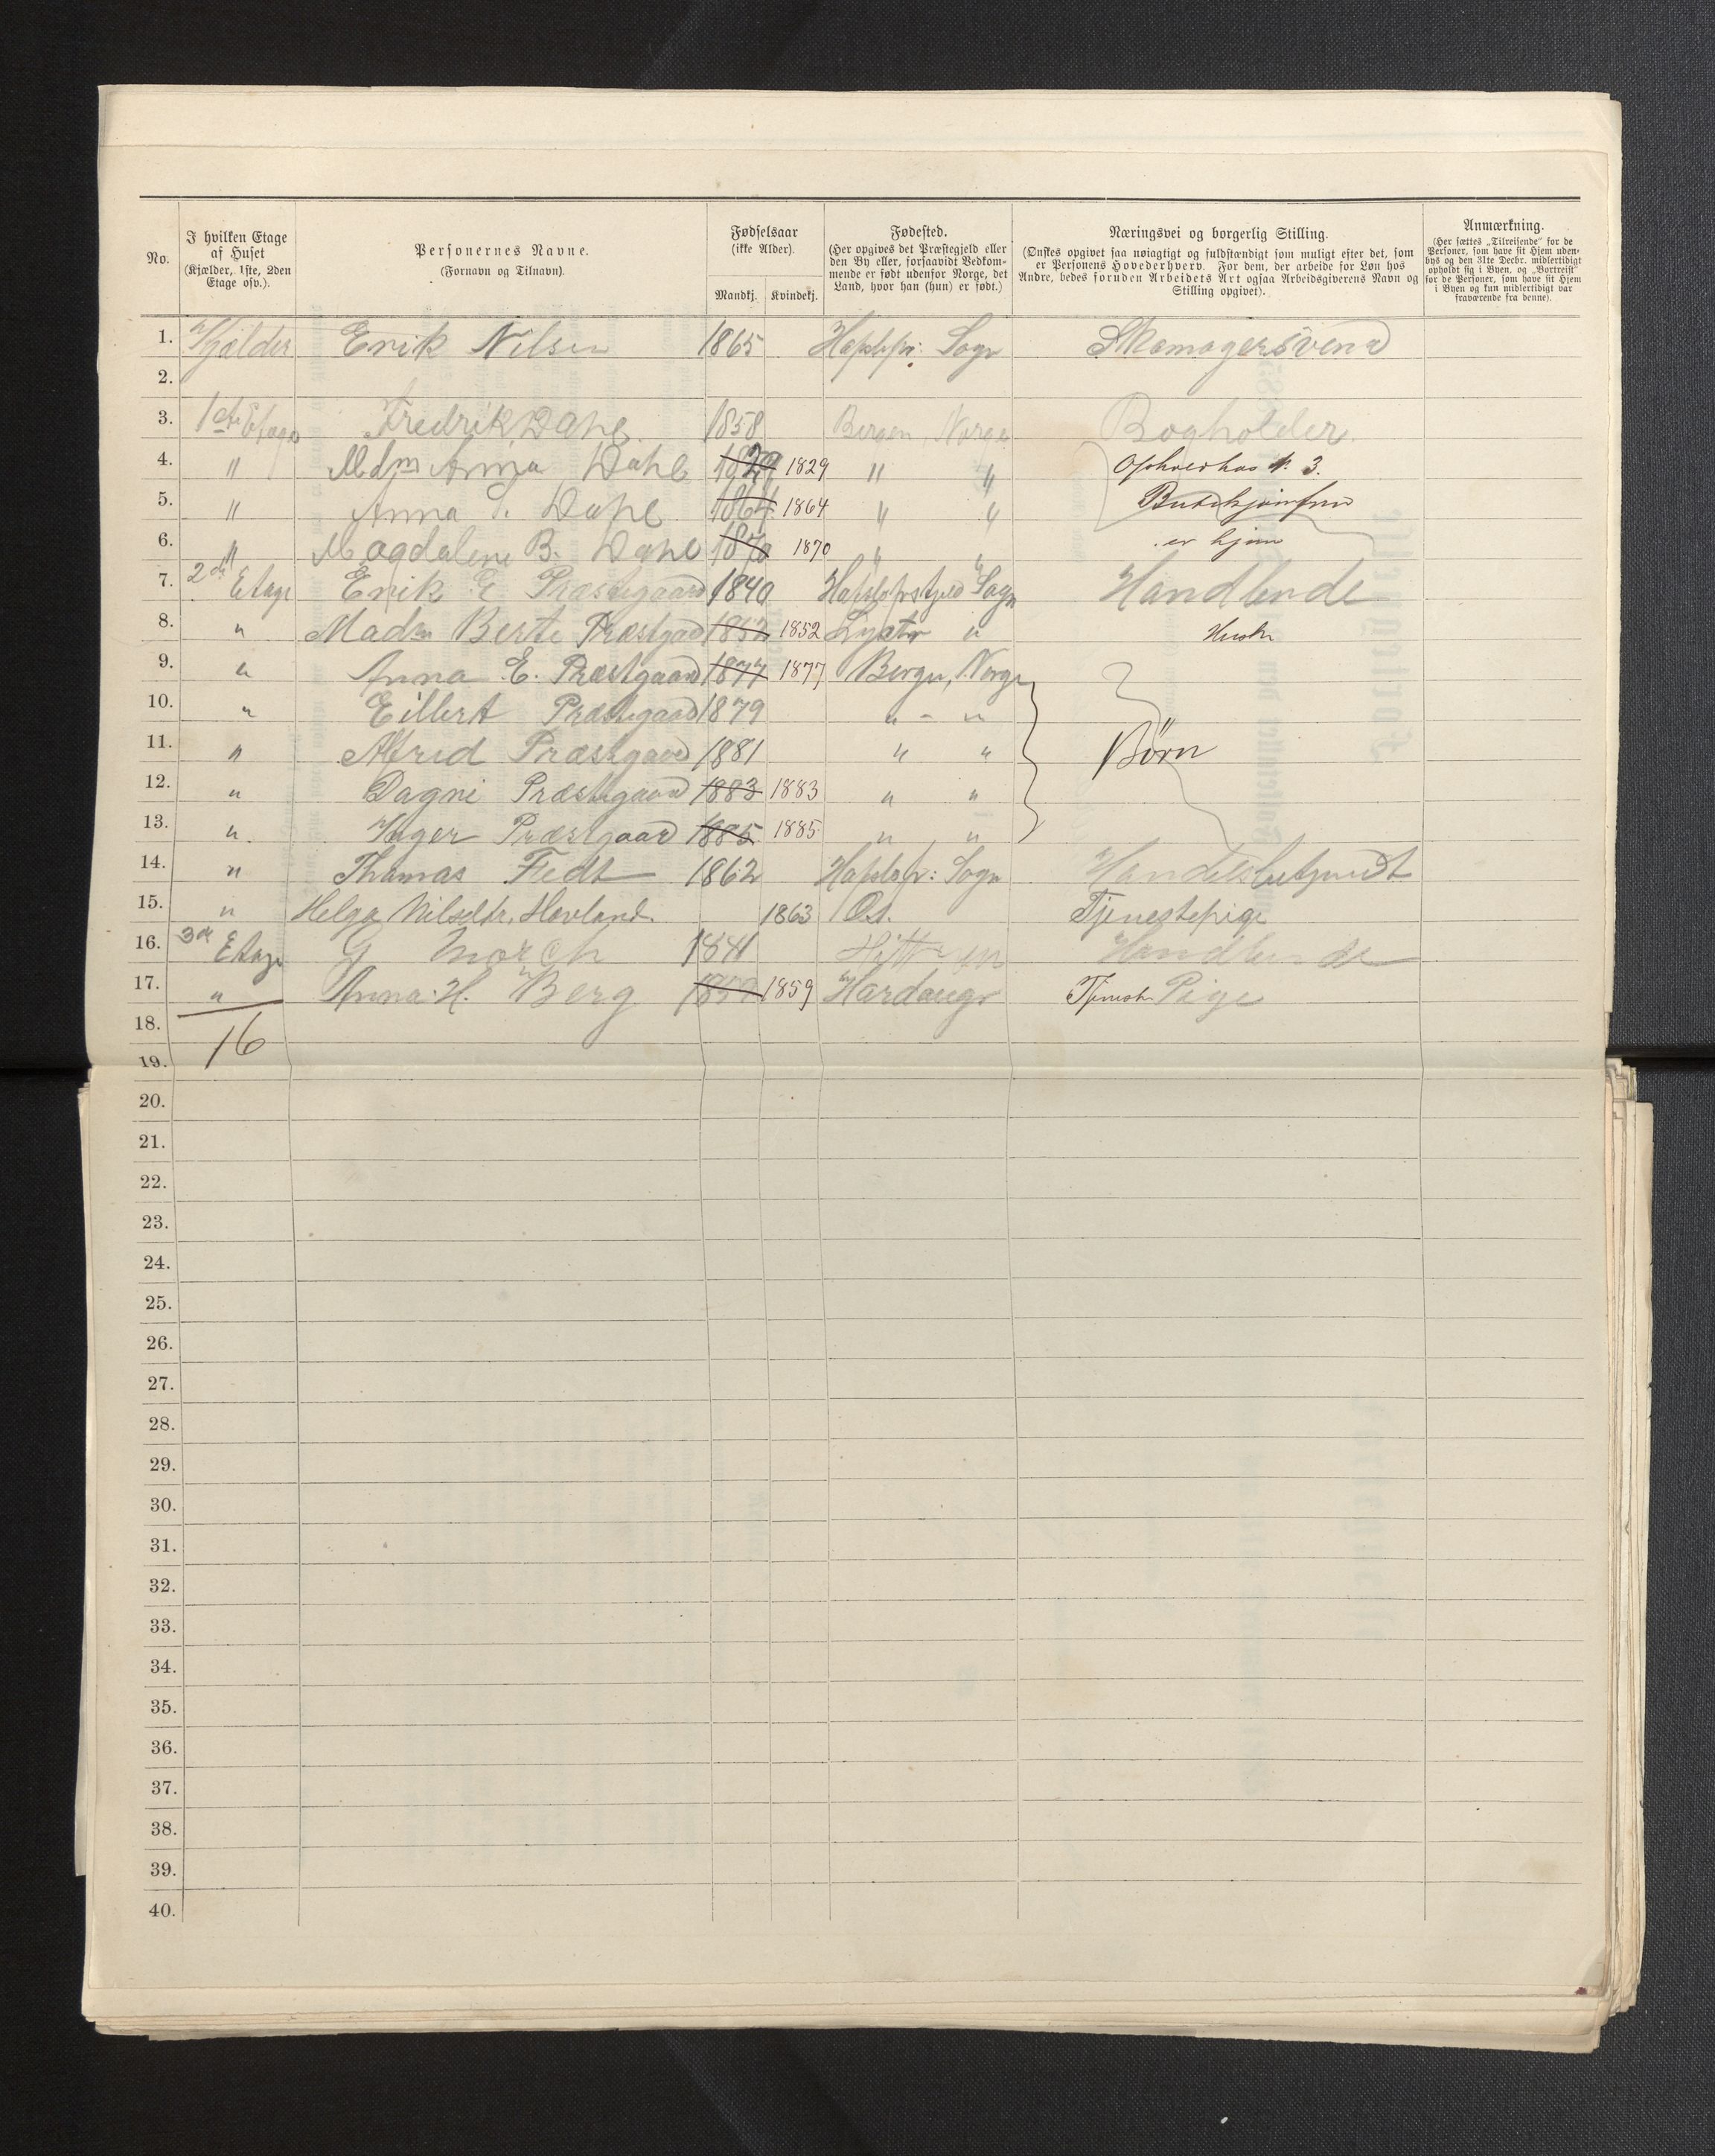 No. I hvilken Etage af Huset (Kjælder, 1ste, 2den Etage osv.). Personernes Navne. (Fornavn og Tilnavn). Fødselsaar (ikke Alder). Mandkj. Kvindekj. Fødested. (Her opgives det Præstegjeld eller den By eller, forsaavidt Vedkommende er født udenfor Norge, det Land, hvor han (hun) er født.) Næringsvei og borgerlig Stilling. (Ønskes opgivet saa nøiagtigt og fuldstændigt som muligt efter det, som er Personens Hovederhverv. For dem, der arbeide for Løn hos Andre, bedes foruden Arbeidets Art ogsaa Arbeidsgiverens Navn og Stilling opgivet). Anmærkning. (Her sættes „Tilreisende“ for de Personer, som have sit Hjem udenbys og den 31te Decbr. midlertidigt opholdt sig i Byen, og „Bortreist“ for de Personer, som have sit Hjem i Byen og kun midlertidigt var fraværende fra denne).
1. Kjælder Erik Nilsen 1865 Sogn Skomagersvend
2.
3. 1ste Etage Fredrik Dahl 1858 Bergen, Norge Bogholder
4. " Mdm Anna Dahl 1829 1829 " "
5. " Anna S. Dahl 1864 1864 " "
6. " Magdalene B. Dahl 1870 1870 " " er hjem
7. 2den Etage Erik E Præstegaard 1840 Sogn Handlende
8. " Madm Berte Præstgaard 1852 1852 Lyster " Hustr
9. " Anna E. Præstgaard 1877 1877 Bergen, Norge
10. " Eilert Præstegaard 1879 " - "
11. " Alfred Præstgaard 1881 " " Børn
12. " Dagni Præstegaard 1883 1883 " "
13. " Inger Præstgaard 1885 1885 " "
14. " Thomas Fedt 1862 Sogn
15. " Helga Nilsdtr. Hovland. 1863 Os. Tjenestepige
16. 3de Etage G Morch 1841 Handlende
17. " Anna H. Berg 1859 1859 Hardanger Tjeneste Pige
18. 16
19.
20.
21.
22.
23.
24.
25.
26.
27.
28.
29.
30.
31.
32.
33.
34.
35.
36.
37.
38.
39.
40.